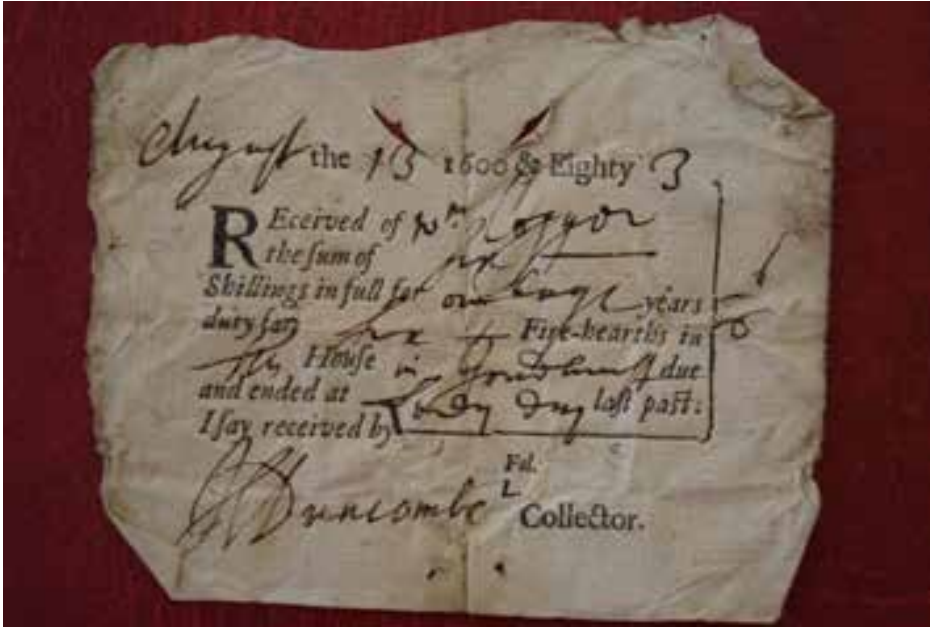 August the 13 1600 & Eighty 3
REceived of Wm
the ſum of ſix
Shillings in full for one halfe years
duty for ſix Fire-hearths in
House in Goudhurst due
and ended at Lady day laſt paſt:
I ſay received by
6
0
Fd.
L
Duncombe Collector.